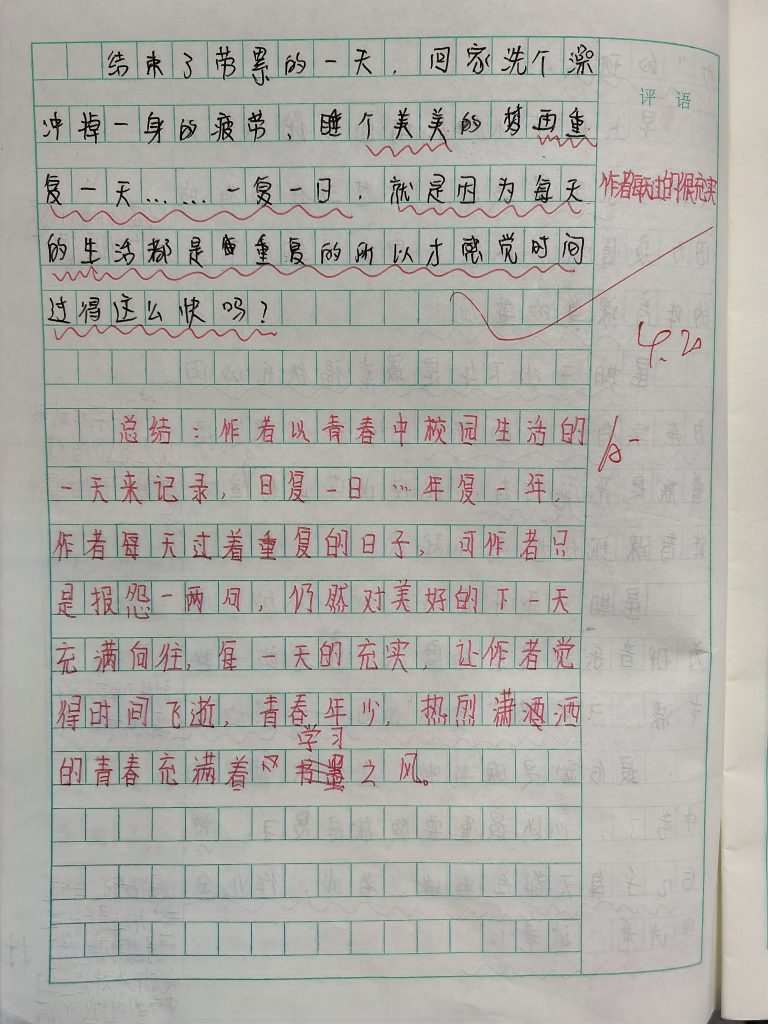 结束了劳累的一天，回家洗个澡
冲掉一身的疲劳、睡个美美的梦再重
复一天……一复一日，就是因为每天
的生活都是重复的所以才感觉时间
过得这么快吗？
评语
作者每天过的很充实
4.20
A-
总结：作者以青春中校园生活的
一天来记录，日复一日…年复一年、
作者每天过着重复的日子，可作者只
是报怨一两句，仍然对美好的下一天
充满向往，每一天的充实，让作者觉
得时间飞逝，青春年少，热烈潇洒
的青春充满着学习之风。